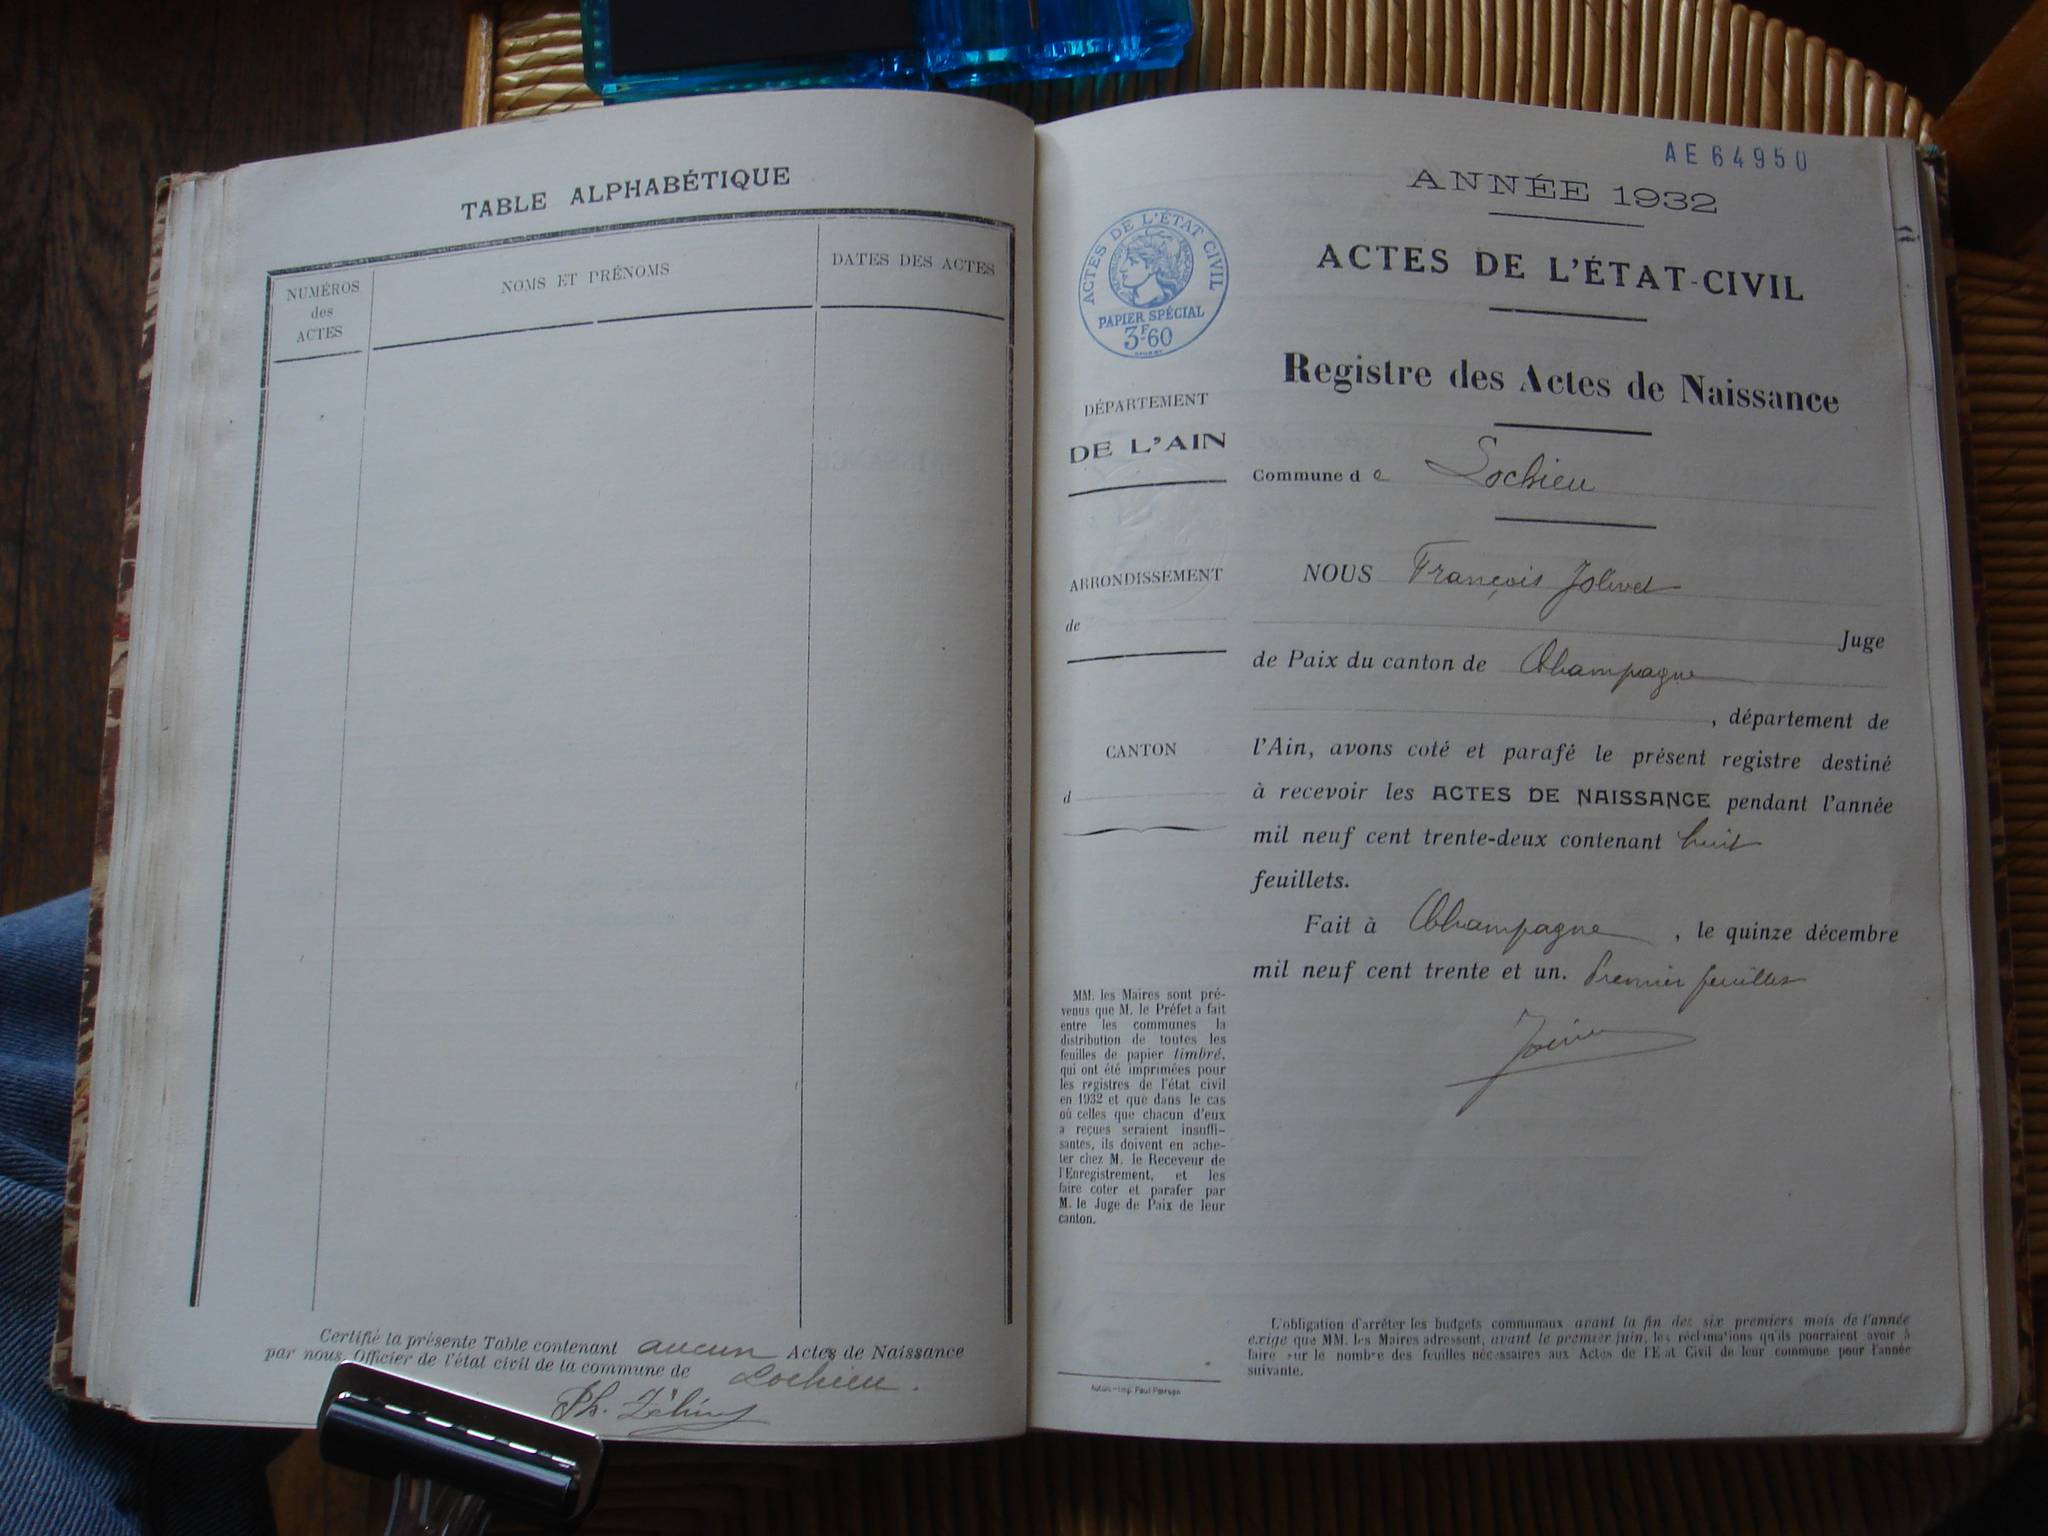 TABLE ALPHABÉTIQUE
NUMÉROS
des
ACTES
NOMS ET PRÉNOMS
DATES DES ACTES
Certifié la présente Table contenant aucun Actes de Naissance
par nous, Officier de l'état civil de la commune de Lochieu.
Ph.
AE64950
ANNÉE 1932
ACTES DE L'ÉTAT-CIVIL
Registre des Actes de Naissance
ACTES DE L'ÉTAT CIVIL
RÉPUBLIQUE FRANÇAISE
PAPIER SPÉCIAL
3F60
DÉPARTEMENT
DE L'AIN
ARRONDISSEMENT
de
CANTON
d
MM. les Maires sont pré-
venus que M. le Préfet a fait
entre les communes la
distribution de toutes les
feuilles de papier timbré,
qui ont été imprimées pour
les registres de l'état civil
en 1932 et que dans le cas
où celles que chacun d'eux
a reçues seraient insuffi-
santes, ils doivent en ache-
ter chez M. le Receveur de
l'Enregistrement, et les
faire coter et parafer par
M. le Juge de Paix de leur
canton.
Commune de Lochieu
NOUS François Jolivet
Juge
de Paix du canton de Champagne
, département de
l'Ain, avons coté et parafé le présent registre destiné
à recevoir les ACTES DE NAISSANCE pendant l'année
mil neuf cent trente-deux contenant huit
feuillets.
Fait à Champagne, le quinze décembre
mil neuf cent trente et un. Premier feuillet
L'obligation d'arrêter les budgets communaux avant la fin des six premiers mois de l'année
exige que MM. les Maires adressent, avant le premier juin, les réclamations qu'ils pourraient avoir à
faire sur le nombre des feuilles nécessaires aux Actes de l'Etat Civil de leur commune pour l'année
suivante.